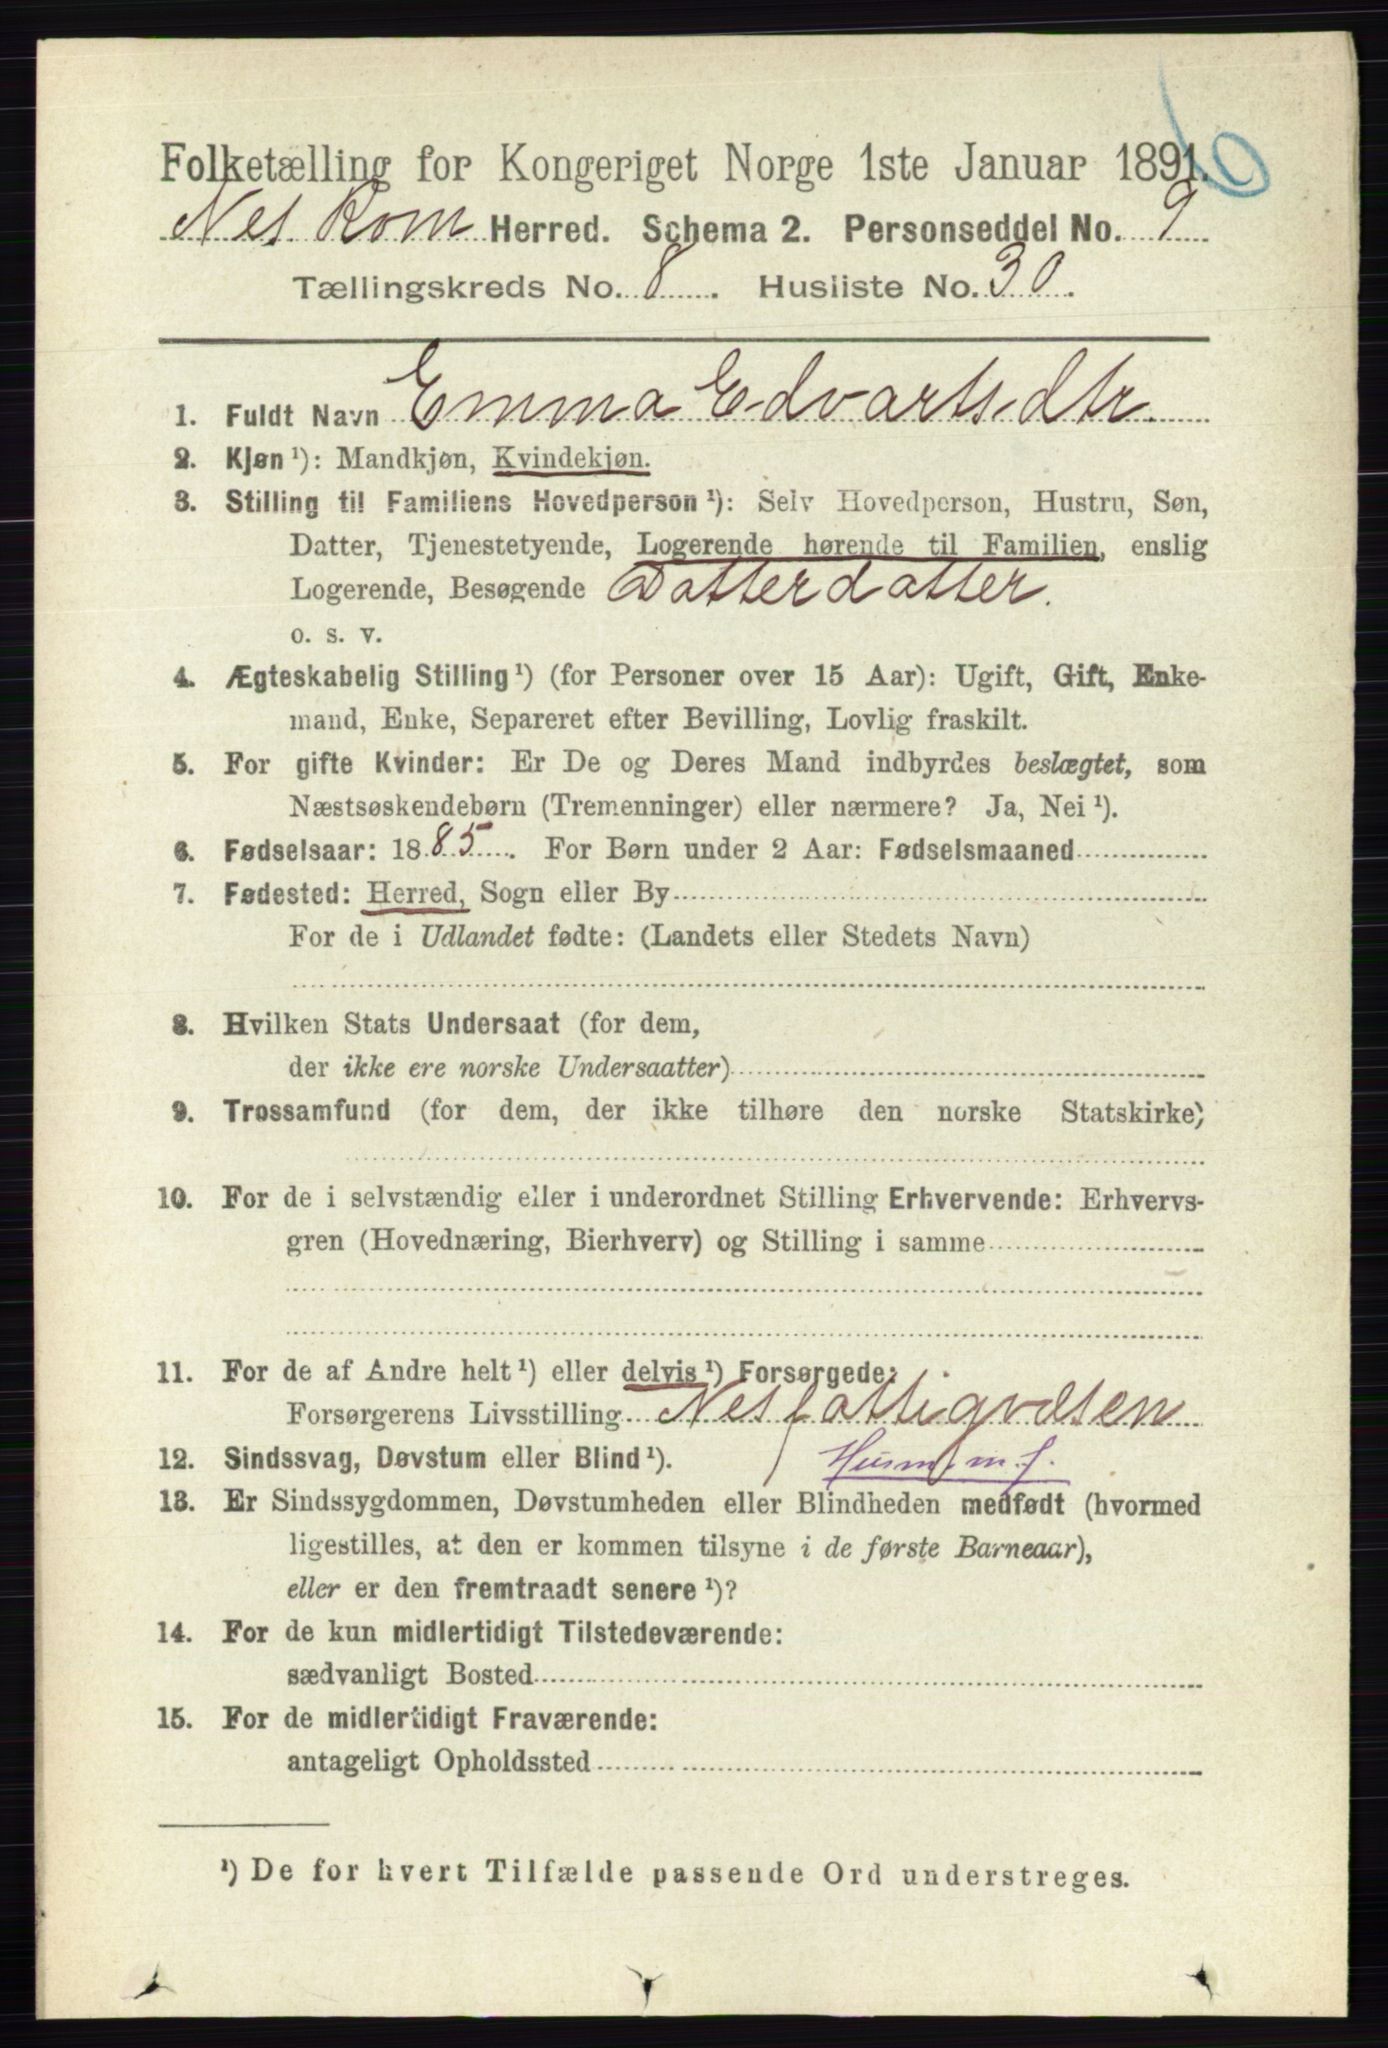 Folketælling for Kongeriget Norge 1ste Januar 1891.
Nes Rom Herred. Schema 2. Personseddel No. 9
Tællingskreds No. 8. Husliste No. 30.
1. Fuldt Navn Emma Edvartsdtr.
2. Kjøn ¹): Mandkjøn, Kvindekjøn.
3. Stilling til Familiens Hovedperson ¹): Selv Hovedperson, Hustru, Søn,
Datter, Tjenestetyende, Logerende hørende til Familien, enslig
Logerende, Besøgende Datterdatter.
o. s. v.
4. Ægteskabelig Stilling ¹) (for Personer over 15 Aar): Ugift, Gift, Enke-
mand, Enke, Separeret efter Bevilling, Lovlig fraskilt.
5. For gifte Kvinder: Er De og Deres Mand indbyrdes beslægtet, som
Næstsøskendebørn (Tremenninger) eller nærmere? Ja, Nei ¹).
6. Fødselsaar: 1885. For Børn under 2 Aar: Fødselsmaaned
7. Fødested: Herred, Sogn eller By
For de i Udlandet fødte: (Landets eller Stedets Navn)
8. Hvilken Stats Undersaat (for dem,
der ikke ere norske Undersaatter)
9. Trossamfund (for dem, der ikke tilhøre den norske Statskirke)
10. For de i selvstændig eller i underordnet Stilling Erhvervende: Erhvervs-
gren (Hovednæring, Bierhverv) og Stilling i samme
11. For de af Andre helt ¹) eller delvis ¹) Forsørgede:
Forsørgerens Livsstilling Nes fattigvæsen
12. Sindssvag, Døvstum eller Blind ¹). Husm. m. f.
13. Er Sindssygdommen, Døvstumheden eller Blindheden medfødt (hvormed
ligestilles, at den er kommen tilsyne i de første Barneaar),
eller er den fremtraadt senere ¹)?
14. For de kun midlertidigt Tilstedeværende:
sædvanligt Bosted
15. For de midlertidigt Fraværende:
antageligt Opholdssted
¹) De for hvert Tilfælde passende Ord understreges.